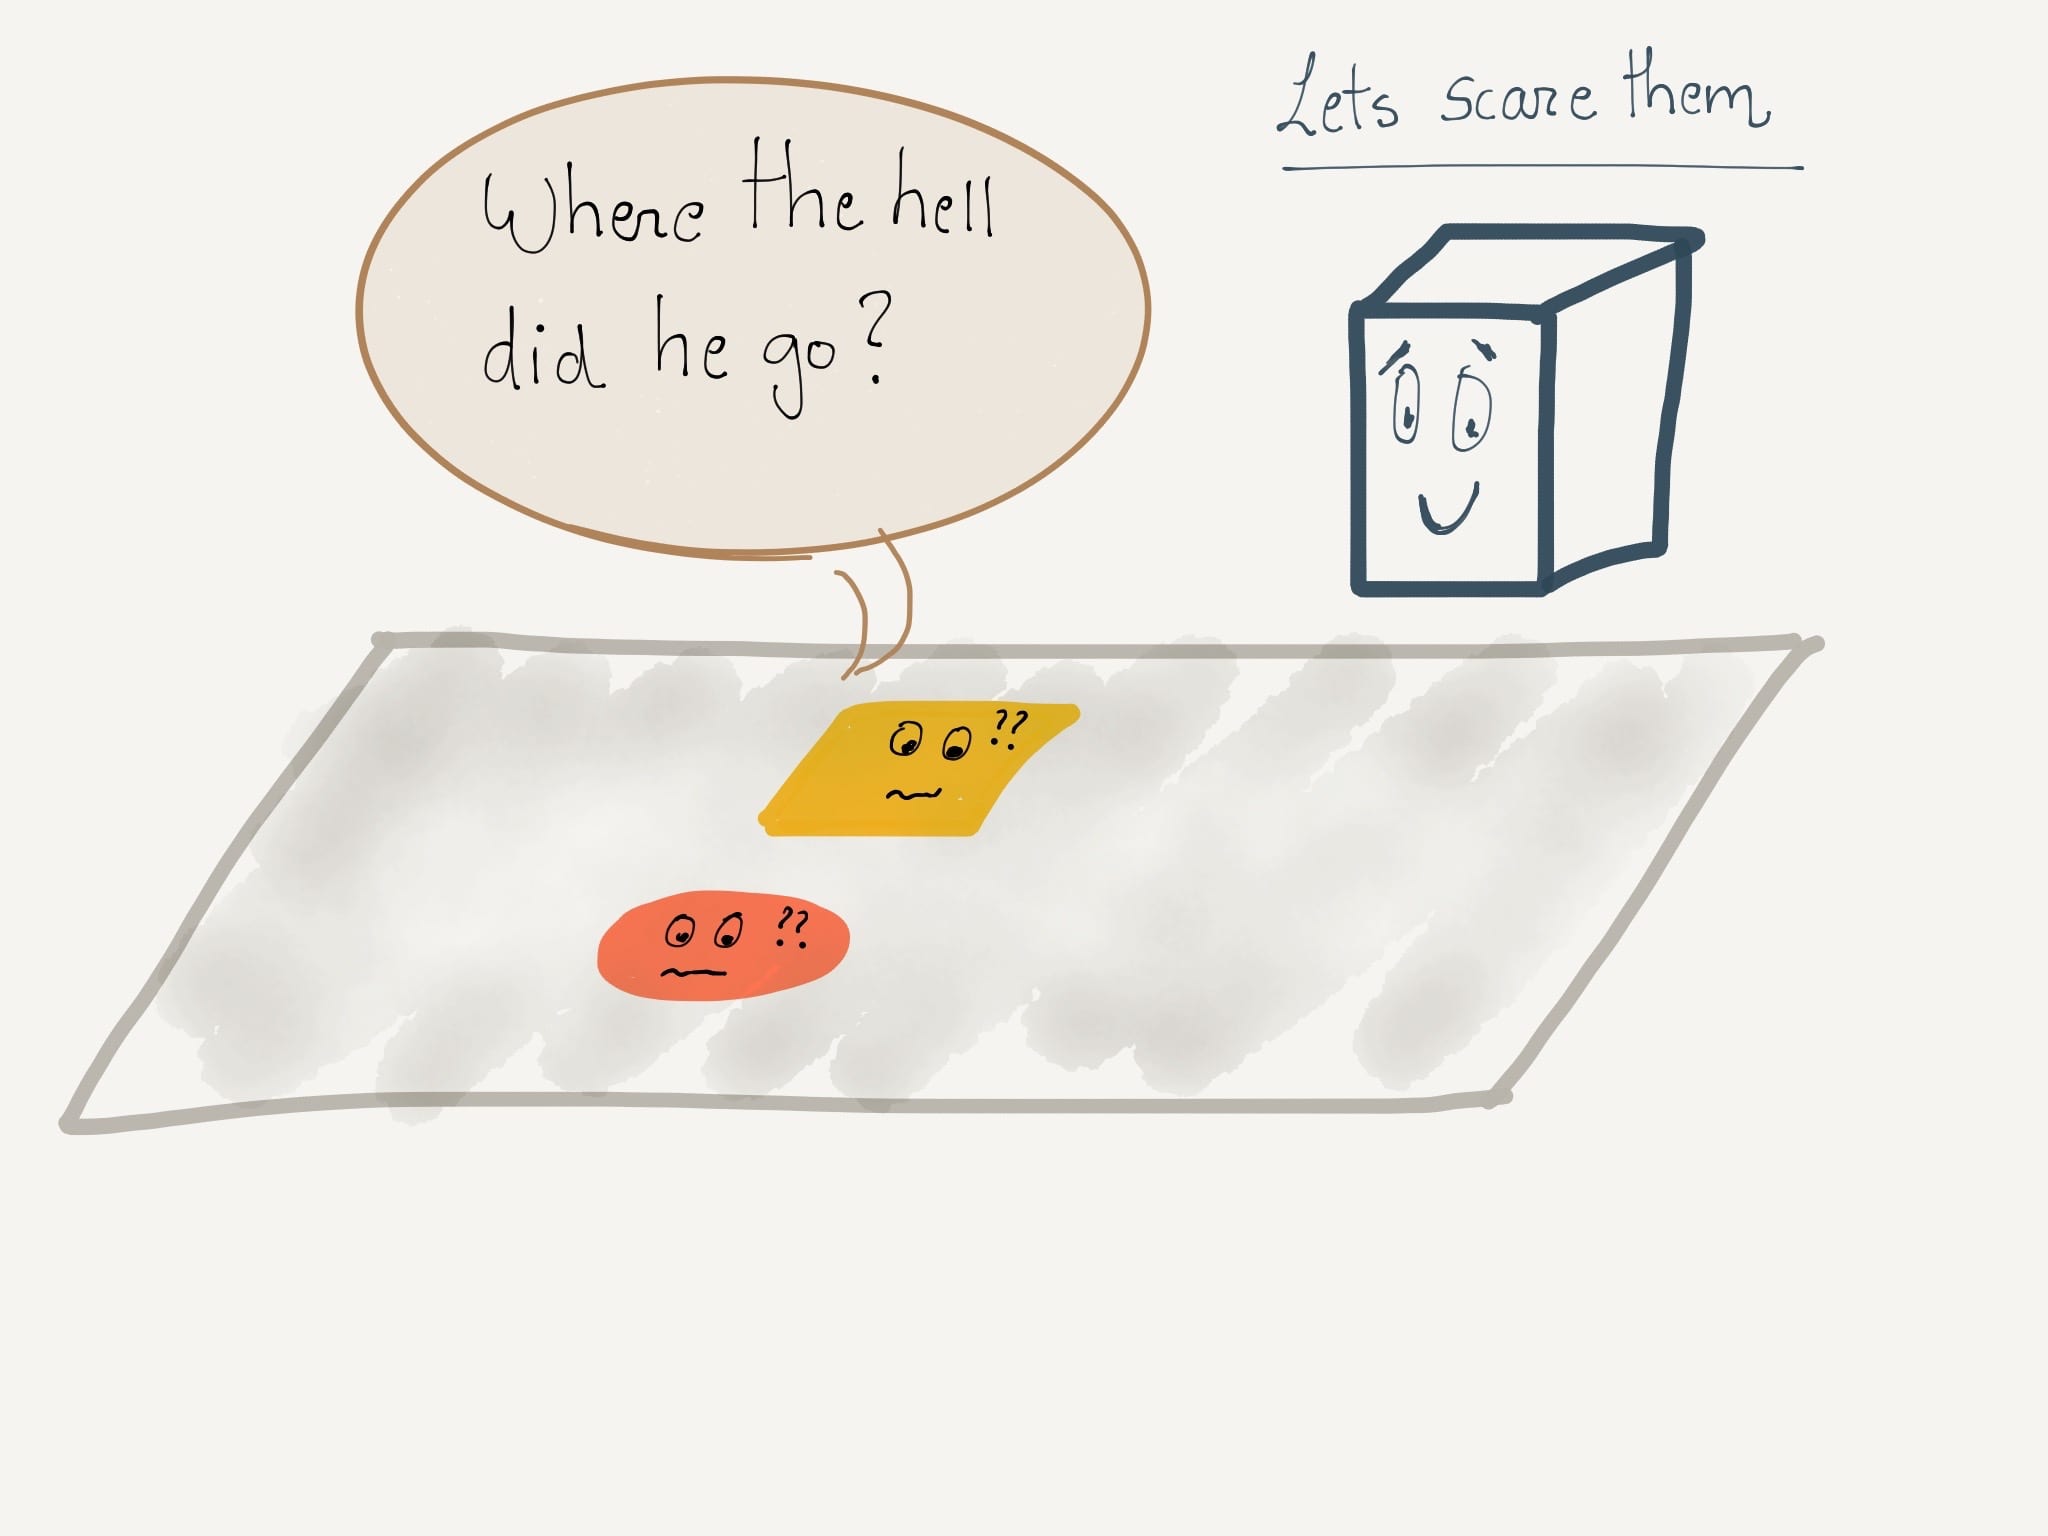 Lets scare them
Where the hell
did he go?
??
??